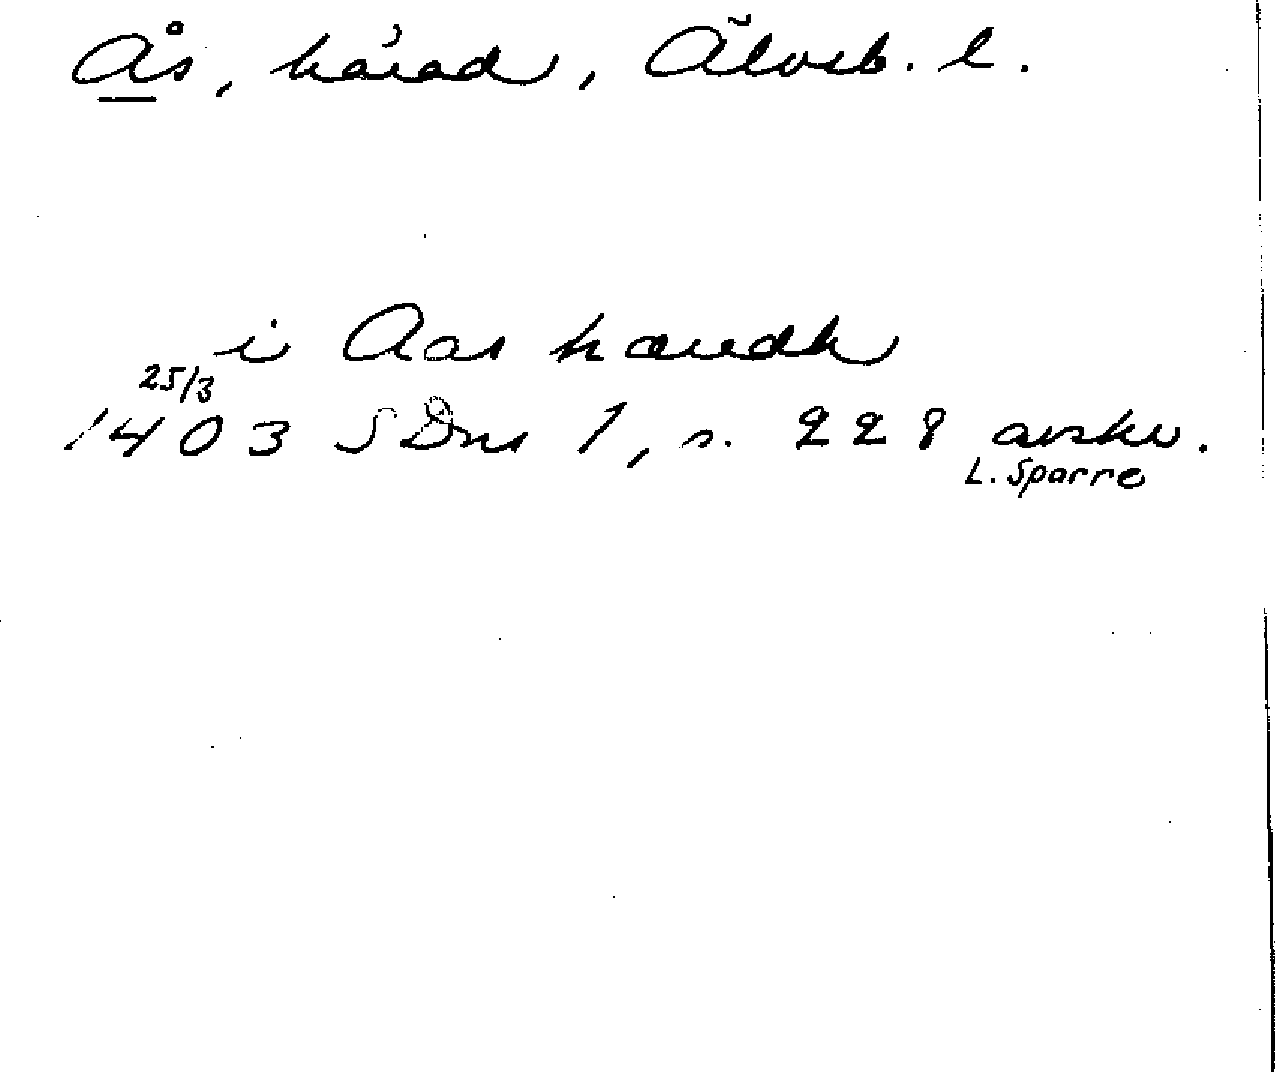 Ås, härad, Älvsb. l.
i Aas hæradh
25/3
1403 SDns 1, s. 228 avskr.
L. Sparre